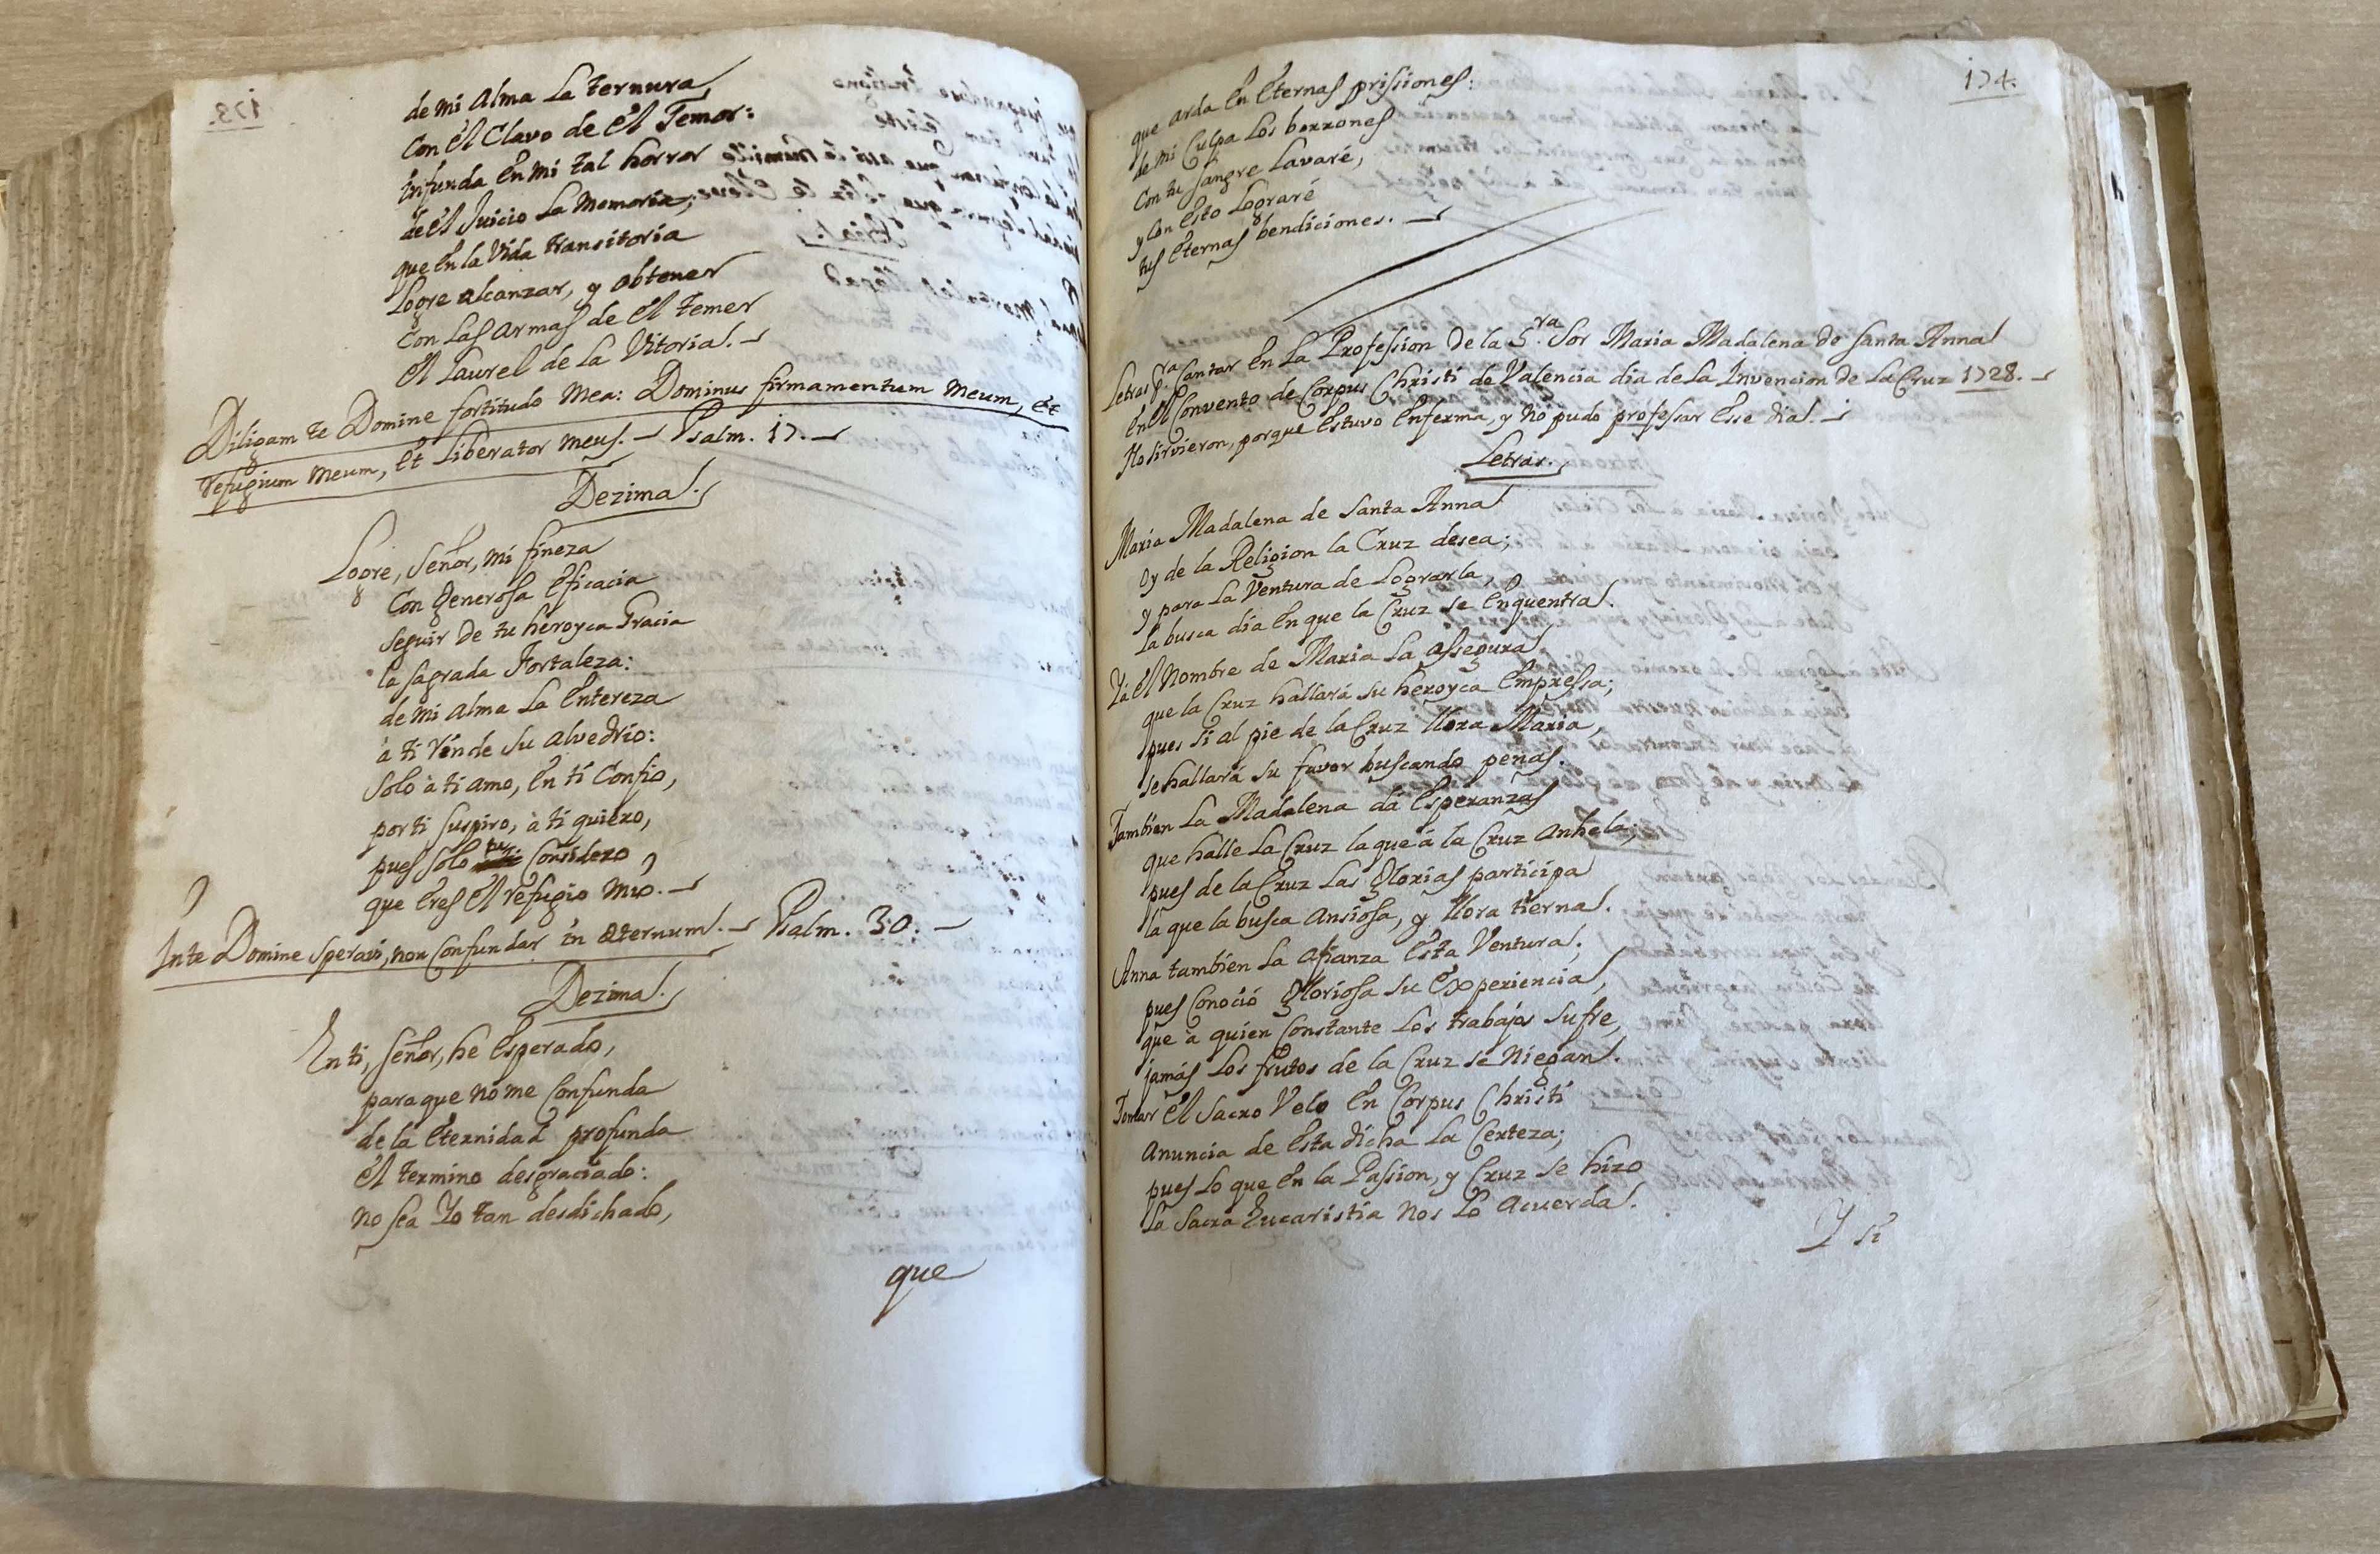 de mi Alma la ternura,
Con el Clavo de el Temor:
infunda en mi tal horror
de el Juicio la Memoria,
que en la Vida transitoria
Logre alcanzar, y obtener
Con las armas de el temer
el Laurel de la Vitoria.
Diligam te Domine fortitudo mea: Dominus firmamentum meum, et
refugium meum, et Liberator meus. Psalm. 17.
Dezima.
Logre, Señor, mi fineza
Con generosa eficacia
seguir de tu heroyca Gracia
la sagrada Fortaleza:
de mi alma la entereza
à ti rinde su alvedrio:
solo à ti amo, en ti Confio,
por ti suspiro, à ti quiero,
pues solo Considero,
que eres el refugio mio.
In te Domine speravi, non Confundar in æternum. Psalm. 30.
Dezima.
En ti, señor, he esperado,
para que no me Confunda
de la eternidad profunda
el termino desgraciado:
no sea Yo tan desdichado,
que
174.
que arda en eternas prissiones:
de mi Culpa los borrones
Con tu sangre Lavaré,
y Con esto Lograré
tus eternas bendiciones.
Letras p.ra Cantar en la Profession de la S.ra Sor Maria Madalena de Santa Anna
en el Convento de Corpus Christi de Valencia dia de la Invencion de la Cruz 1728.
No sirvieron, porque estuvo enferma, y no pudo professar esse dia.
Letras.
Maria Madalena de Santa Anna
oy de la Religion la Cruz desea;
y para la Ventura de Lograrla,
la busca dia en que la Cruz se enquentra.
Ya el Nombre de Maria la assegura
que la Cruz hallará su heroyca empressa;
pues si al pie de la Cruz llora Maria,
se hallará su favor buscando penas.
Tambien la Madalena dá esperanzas
que halle la Cruz la que á la Cruz anhela;
pues de la Cruz las glorias participa
la que la busca ansiosa, y llora tierna.
Anna tambien la afianza esta Ventura;
pues Conoció gloriosa su experiencia,
que à quien Constante los trabajos sufre,
jamás los frutos de la Cruz se niegan.
Tomar el sacro Velo en Corpus Christi
Anuncia de esta dicha la Certeza;
pues lo que en la Passion, y Cruz se hizo
la sacra Eucaristia nos lo acuerda.
Y si